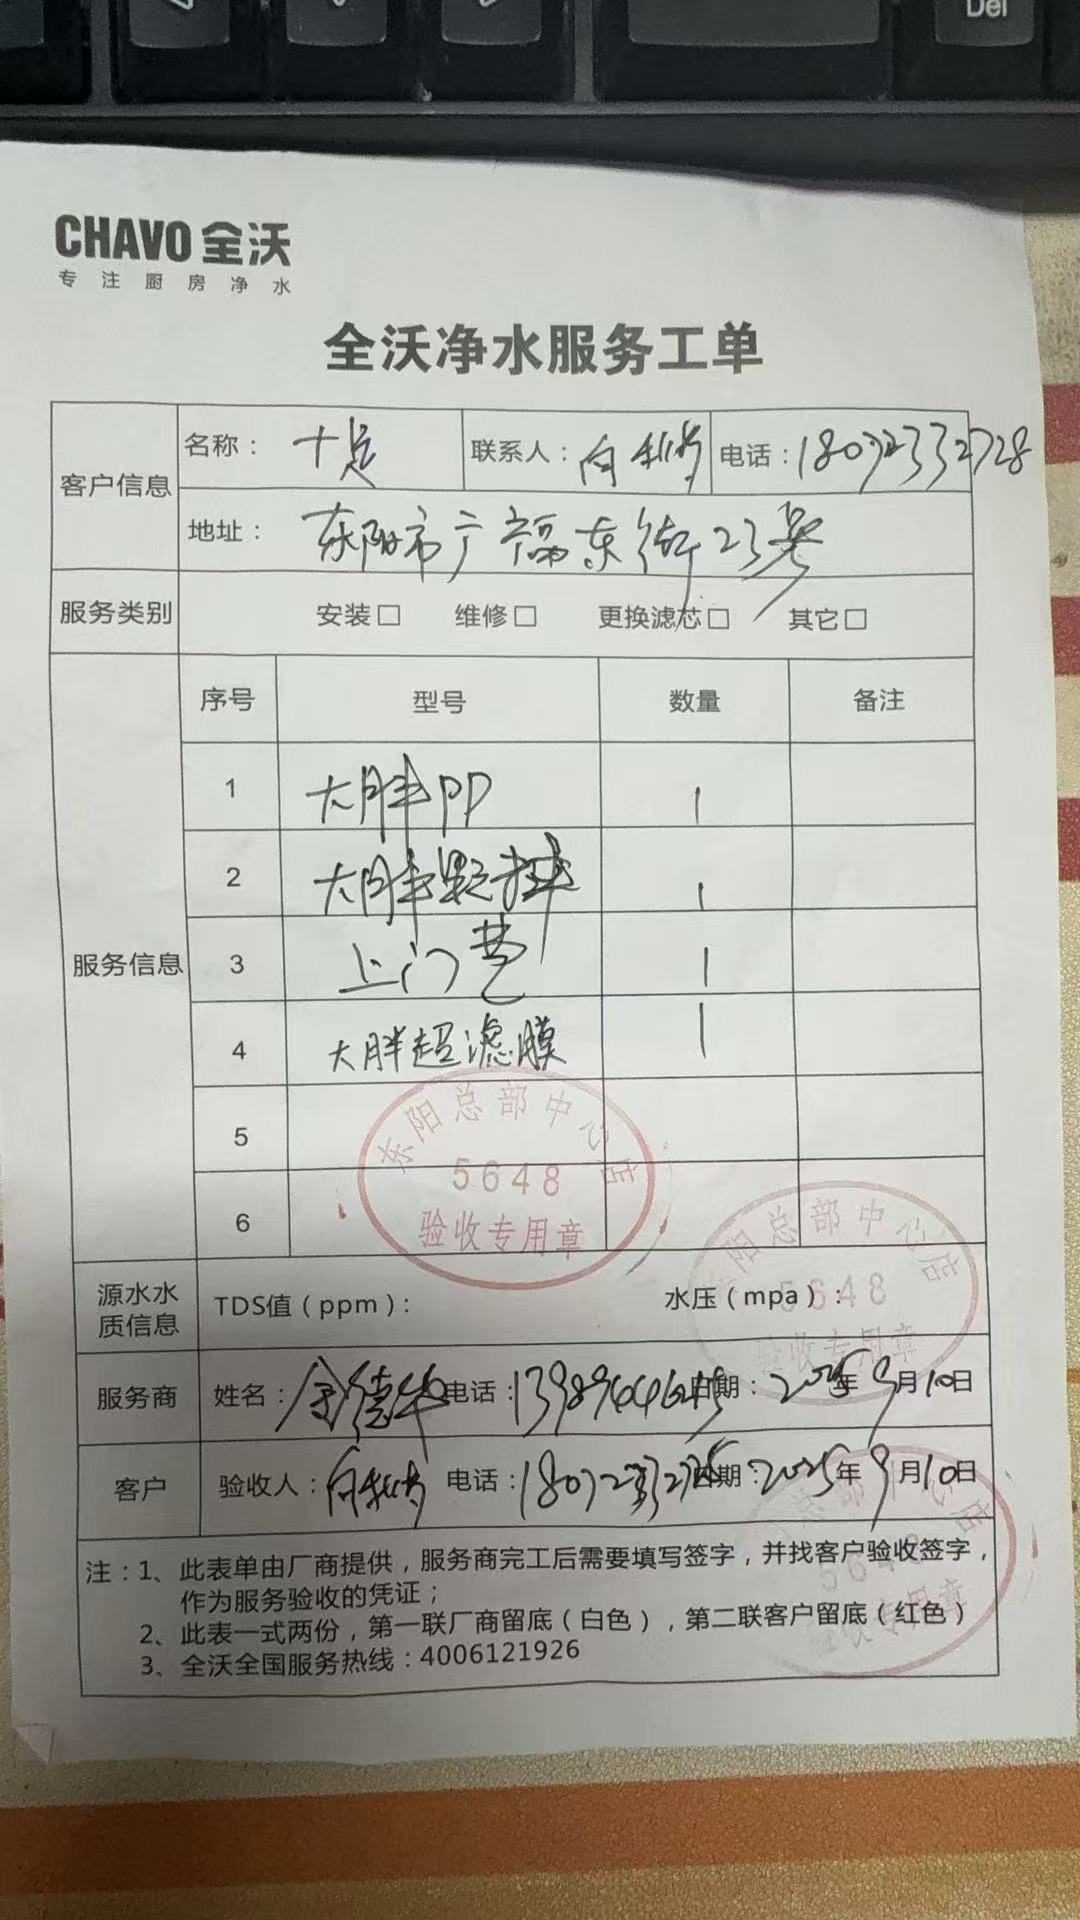 Del
CHAVO 全沃
专注厨房净水
全沃净水服务工单
客户信息
名称： 十足
联系人： 向
电话：18072332728
地址： 东阳市广福东街23号
服务类别 安装□ 维修□ 更换滤芯□ 其它□
服务信息
序号 型号 数量 备注
1 大胖PP 1
2 大胖颗 1
3 上门费 1
4 大胖超滤膜 1
5
6
东阳总部中心店
5648
验收专用章
阳总部中心店
5648
验收专用章
源水水质信息
TDS值（ppm）： 水压（mpa）：
服务商 姓名：金德华 电话： 日期：2025年9月10日
客户 验收人：向 电话： 日期：2025年9月10日
总部中心店
5648
验收专用章
注：1、此表单由厂商提供，服务商完工后需要填写签字，并找客户验收签字，
作为服务验收的凭证；
2、此表一式两份，第一联厂商留底（白色），第二联客户留底（红色）
3、全沃全国服务热线：4006121926